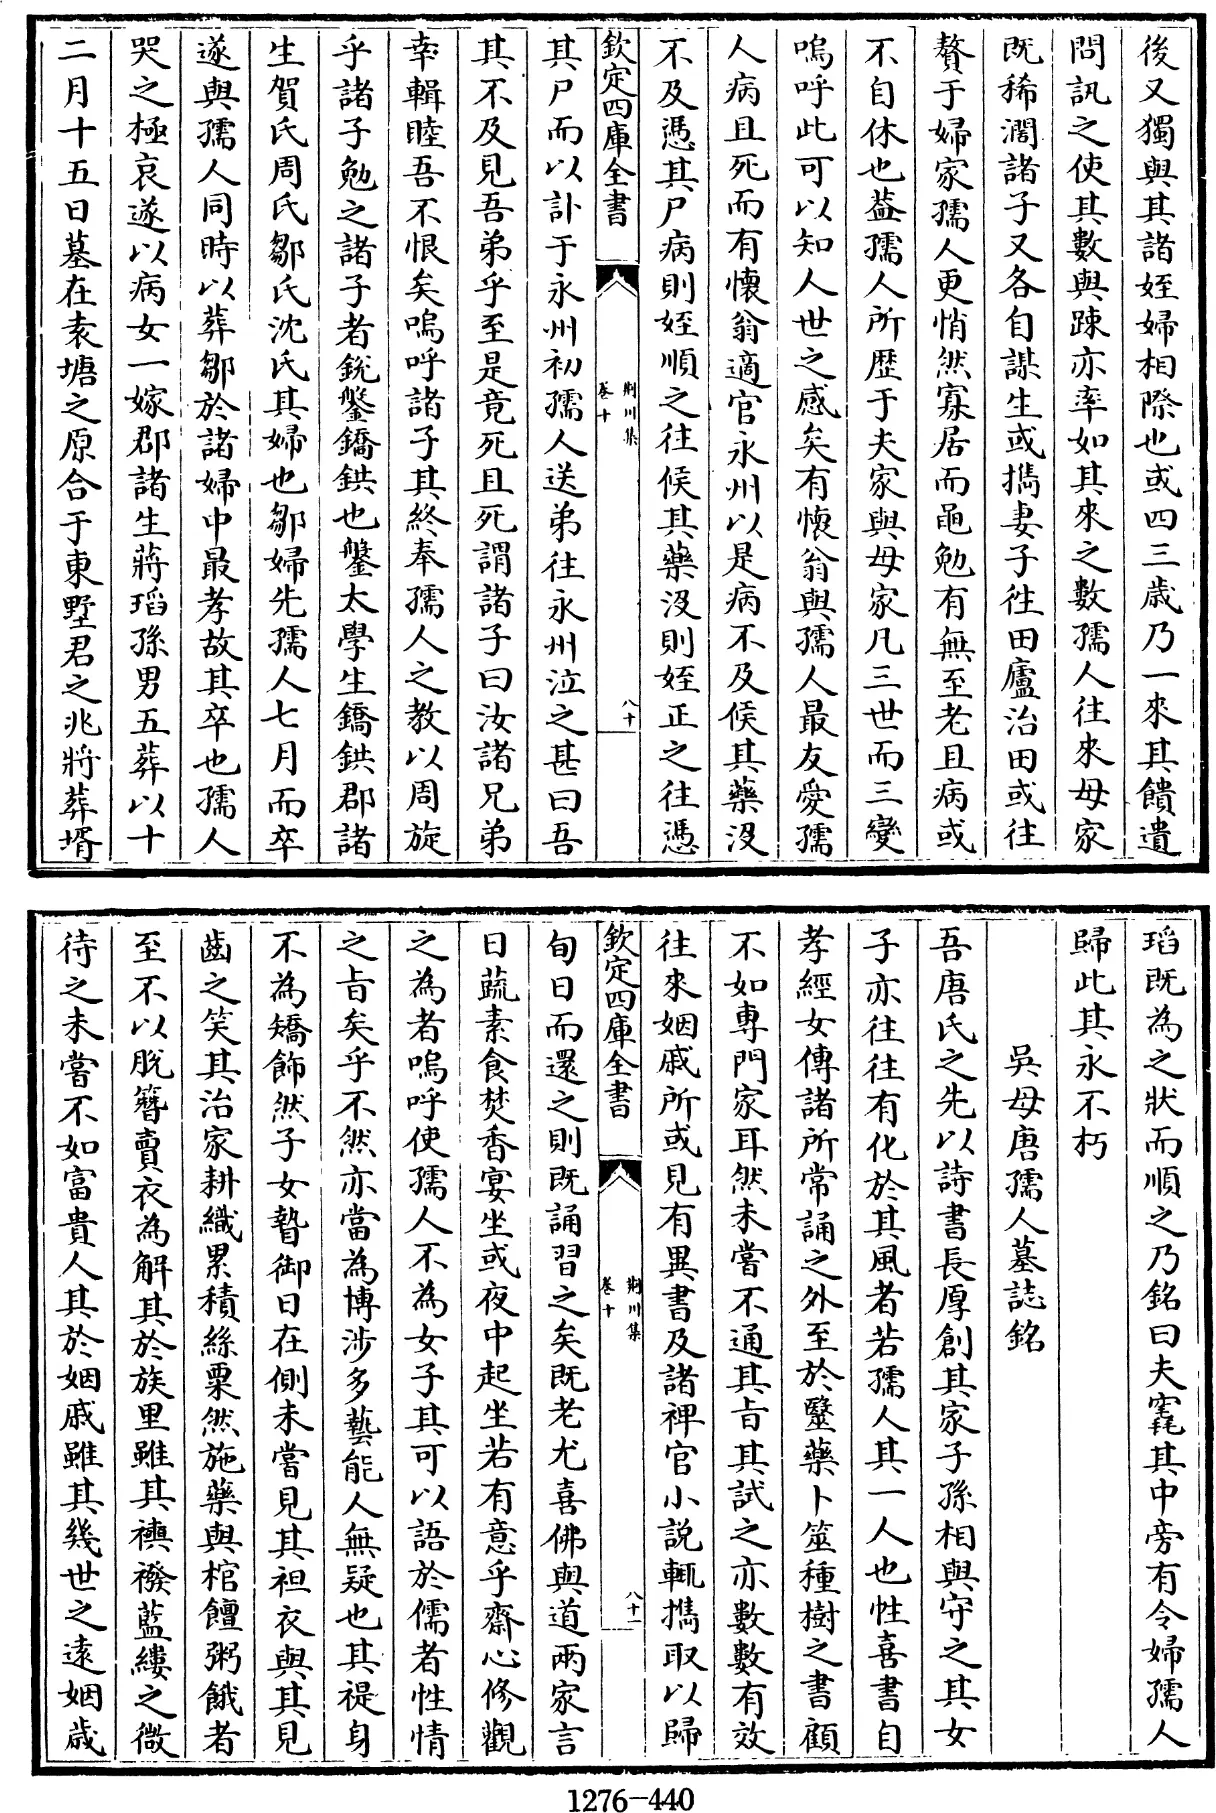 後又獨與其諸姪婦相際也或四三歲乃一來其饋遺
問訊之使其數與踈亦率如其來之數孺人往來母家
既稀濶諸子又各自謀生或擕妻子徃田廬治田或往
贅于婦家孺人更悄然寡居而黽勉有無至老且病或
不自休也葢孺人所歴于夫家與母家凡三世而三變
嗚呼此可以知人世之感矣有懷翁與孺人最友愛孺
人病且死而有懷翁適官永州以是病不及候其藥沒
不及憑其尸病則姪順之往候其藥沒則姪正之往憑
欽定四庫全書
荆川集
卷十
八十
其尸而以訃于永州初孺人送弟往永州泣之甚曰吾
其不及見吾弟乎至是竟死且死謂諸子曰汝諸兄弟
幸輯睦吾不恨矣嗚呼諸子其終奉孺人之教以周旋
乎諸子勉之諸子者鋭鑿鐈鉷也鑿太學生鐈鉷郡諸
生賀氏周氏鄒氏沈氏其婦也鄒婦先孺人七月而卒
遂與孺人同時以葬鄒於諸婦中最孝故其卒也孺人
哭之極哀遂以病女一嫁郡諸生蔣瑫孫男五葬以十
二月十五日墓在袁塘之原合于東墅君之兆將葬壻
瑫既為之狀而順之乃銘曰夫窀其中旁有令婦孺人
歸此其永不朽
吳母唐孺人墓誌銘
吾唐氏之先以詩書長厚創其家子孫相與守之其女
子亦往往有化於其風者若孺人其一人也性喜書自
孝經女傳諸所常誦之外至於毉藥卜筮種樹之書顧
不如專門家耳然未嘗不通其㫖其試之亦數數有效
往來姻戚所或見有異書及諸稗官小説輒擕取以歸
欽定四庫全書
荆川集
卷十
八十一
旬日而還之則既誦習之矣既老尤喜佛與道兩家言
日蔬素食焚香宴坐或夜中起坐若有意乎齋心修觀
之為者嗚呼使孺人不為女子其可以語於儒者性情
之㫖矣乎不然亦當為博涉多藝能人無疑也其禔身
不為矯飾然子女暬御日在側未嘗見其袒衣與其見
齒之笑其治家耕織累積絲粟然施藥與棺饘粥餓者
至不以脫簪賣衣為解其於族里雖其襖襏藍縷之微
待之未嘗不如富貴人其於姻戚雖其幾世之遠姻歲
1276-440